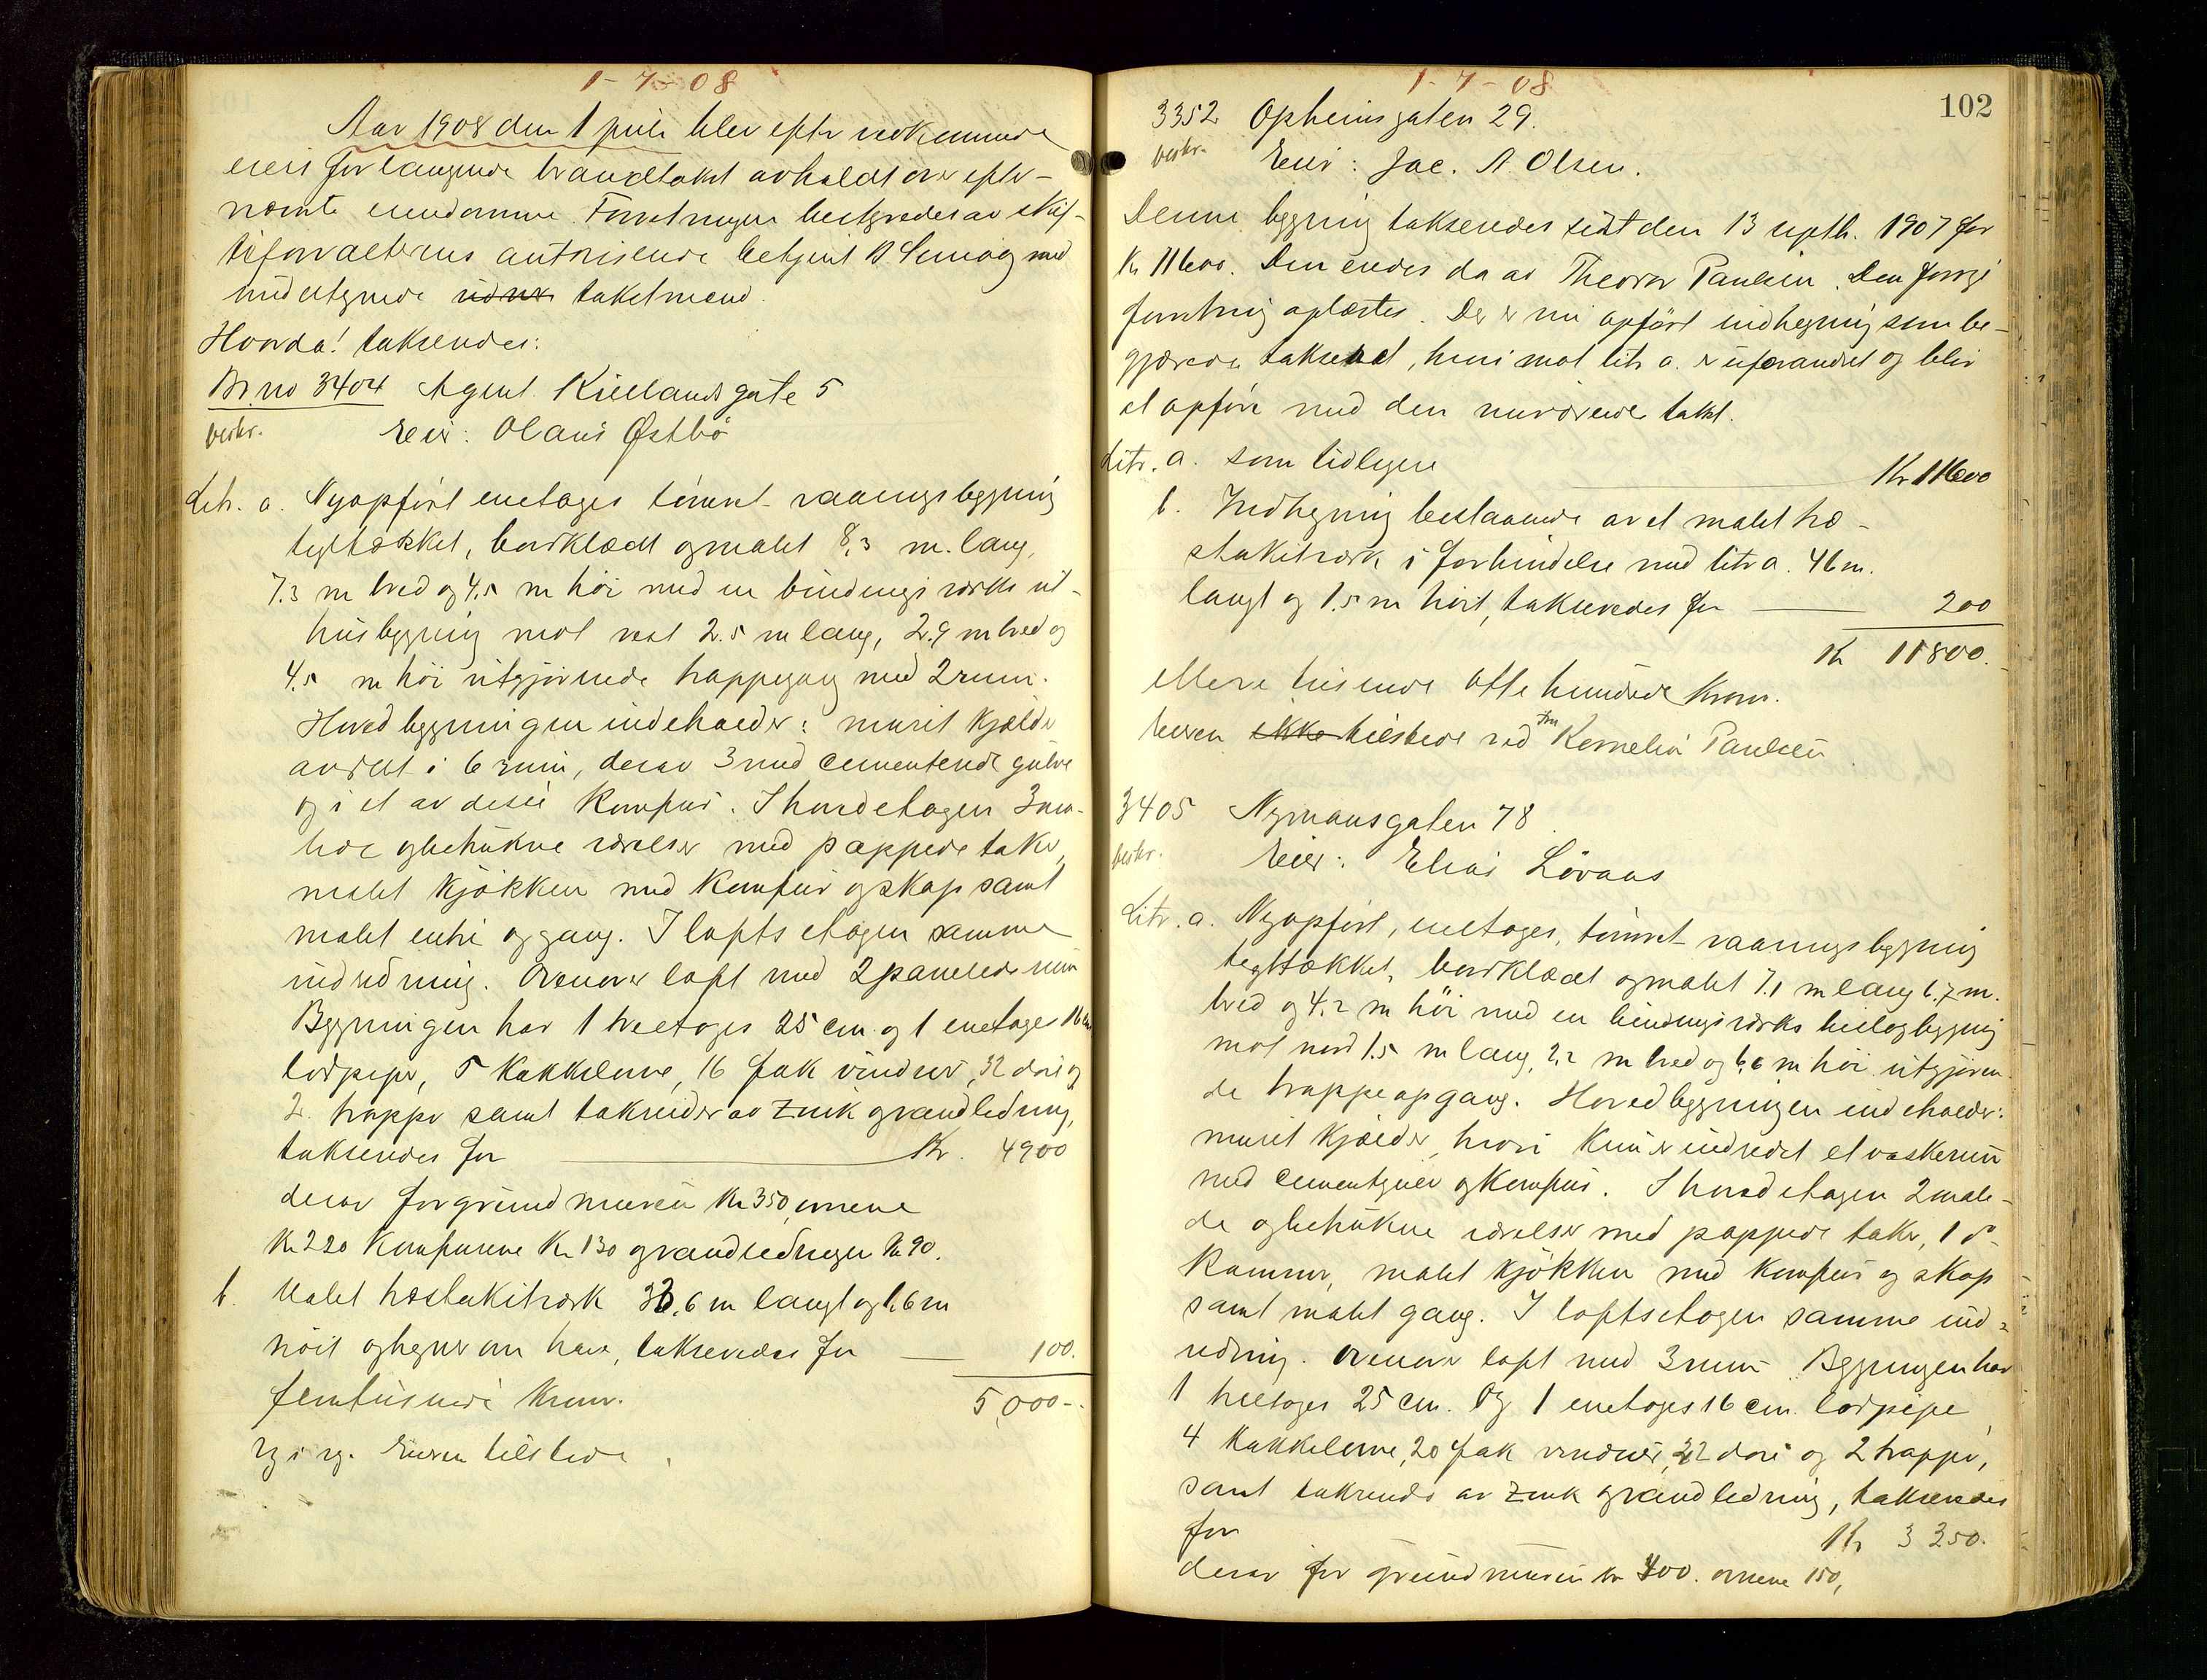 1-7-08
Aar 1908 den 1 juli blev efter vedkommende
eiers forlangende brandtakst avholdt over efter-
nævnte eiendomme. Forretningen bestyredes av skif-
teforvalterens autoriserede betjent med
undertegnede taksmænd.
Hvorda! takseredes:
Br. no 3404 Agent Kiellands gate 5
beskr. Eier: Olaus Østbö
Litr. a. Nyopført enetages tømret vaaningsbygning
tegltækket, bordklædt og malet 8,3 m. lang,
7.3 m bred og 4.5 m høi med en bindingsverks ut-
husbygning mot vest 2.5 m lang, 2.9 m bred og
4.5 m høi utgjørende trappegang med 2 rum.
Hovedbygningen indeholder: muret kjælder
avdelt i 6 rum, derav 3 med cementerede gulve
og i et av disse komfur. I hovedetagen 3 ma-
lede og betrukne værelser med pappede taker,
malet kjøkken med komfur og skap samt
malet entre og gang. I loftsetagen samme
indredning. Ovenover loft med 2 panelede rum
Bygningen har 1 treetages 25 cm. og 1 enetages 16 cm
lodpiper, 5 kakkelovne, 16 fak vinduer, 32 döre og
2 trapper samt takrender av zink og vandledning,
takseredes for Kr. 4900
derav for grundmuren Kr 350, ovnene
Kr 220 komfurene Kr 130 og vandledningen Kr 90.
b. Malet træstakitverk 33,6 m langt og 1.6 m
høit og hegner om have, takseredes for 100.
femtusinde kroner. 5,000-
Eieren tilstede.
1-7-08
102
3352 Opheimsgaten 29.
beskr. Eier: Jac. A. Olsen.
Denne bygning takseredes sidst den 13 septb. 1907 for
Kr 11600. Den eiedes da av Theodor Paulsen. Den forrige
forretning oplæstes. Der er nu opført indhegning som be-
gjæredes taksert, hvorimot litr a. er uforandret og blir
at opføre med den nuværende takst.
Litr. a. som tidligere Kr 11600
b. Indhegning bestaaende av et malet træ-
stakitverk i forbindelse med litr a. 46 m.
langt og 1.5 m høit, takseredes for 200
Kr 11800.
elleve tusende otte hundrede kroner.
Eieren ikke tilstede ved fru Kornelia Paulsen
3405 Nymansgaten 78
beskr. Eier: Elias Lövaas
Litr. a. Nyopført, enetages, tømret vaaningsbygning
tegltækket, bordklædt og malet 7.1 m lang 6.7 m.
bred og 4.2 m høi med en bindingsverks tilbygning
mot nord 1.5 m lang, 2.2 m bred og 4.6 m høi utgjøren-
de trappeopgang. Hovedbygningen indeholder:
muret kjælder, hvori kun er indredet et vaskerum
med cementgulv og komfur. I hovedetagen 2 male-
de og betrukne værelser med pappede taker, 1 do
kammer, malet kjøkken med komfur og skap
samt malet gang. I loftsetagen samme ind-
redning. Ovenover loft med 3 rum. Bygningen har
1 treetages 25 cm. og 1 enetages 16 cm. lodpipe,
4 kakkelovne, 20 fak vinduer, 22 döre og 2 trapper,
samt takrender av zink og vandledning, takseredes
for Kr 3 350.
derav for grundmuren kr 400. ovnene 150,